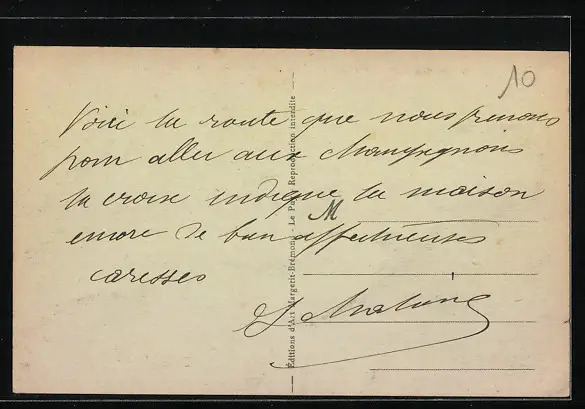 10
Voici la route que nous prenons
pour aller aux Champignons
la croix indique la maison
M
encore de bon affectueuses
caresses
Editions d'Art Margerit-Brémond - Le Puy - Reproduction interdite